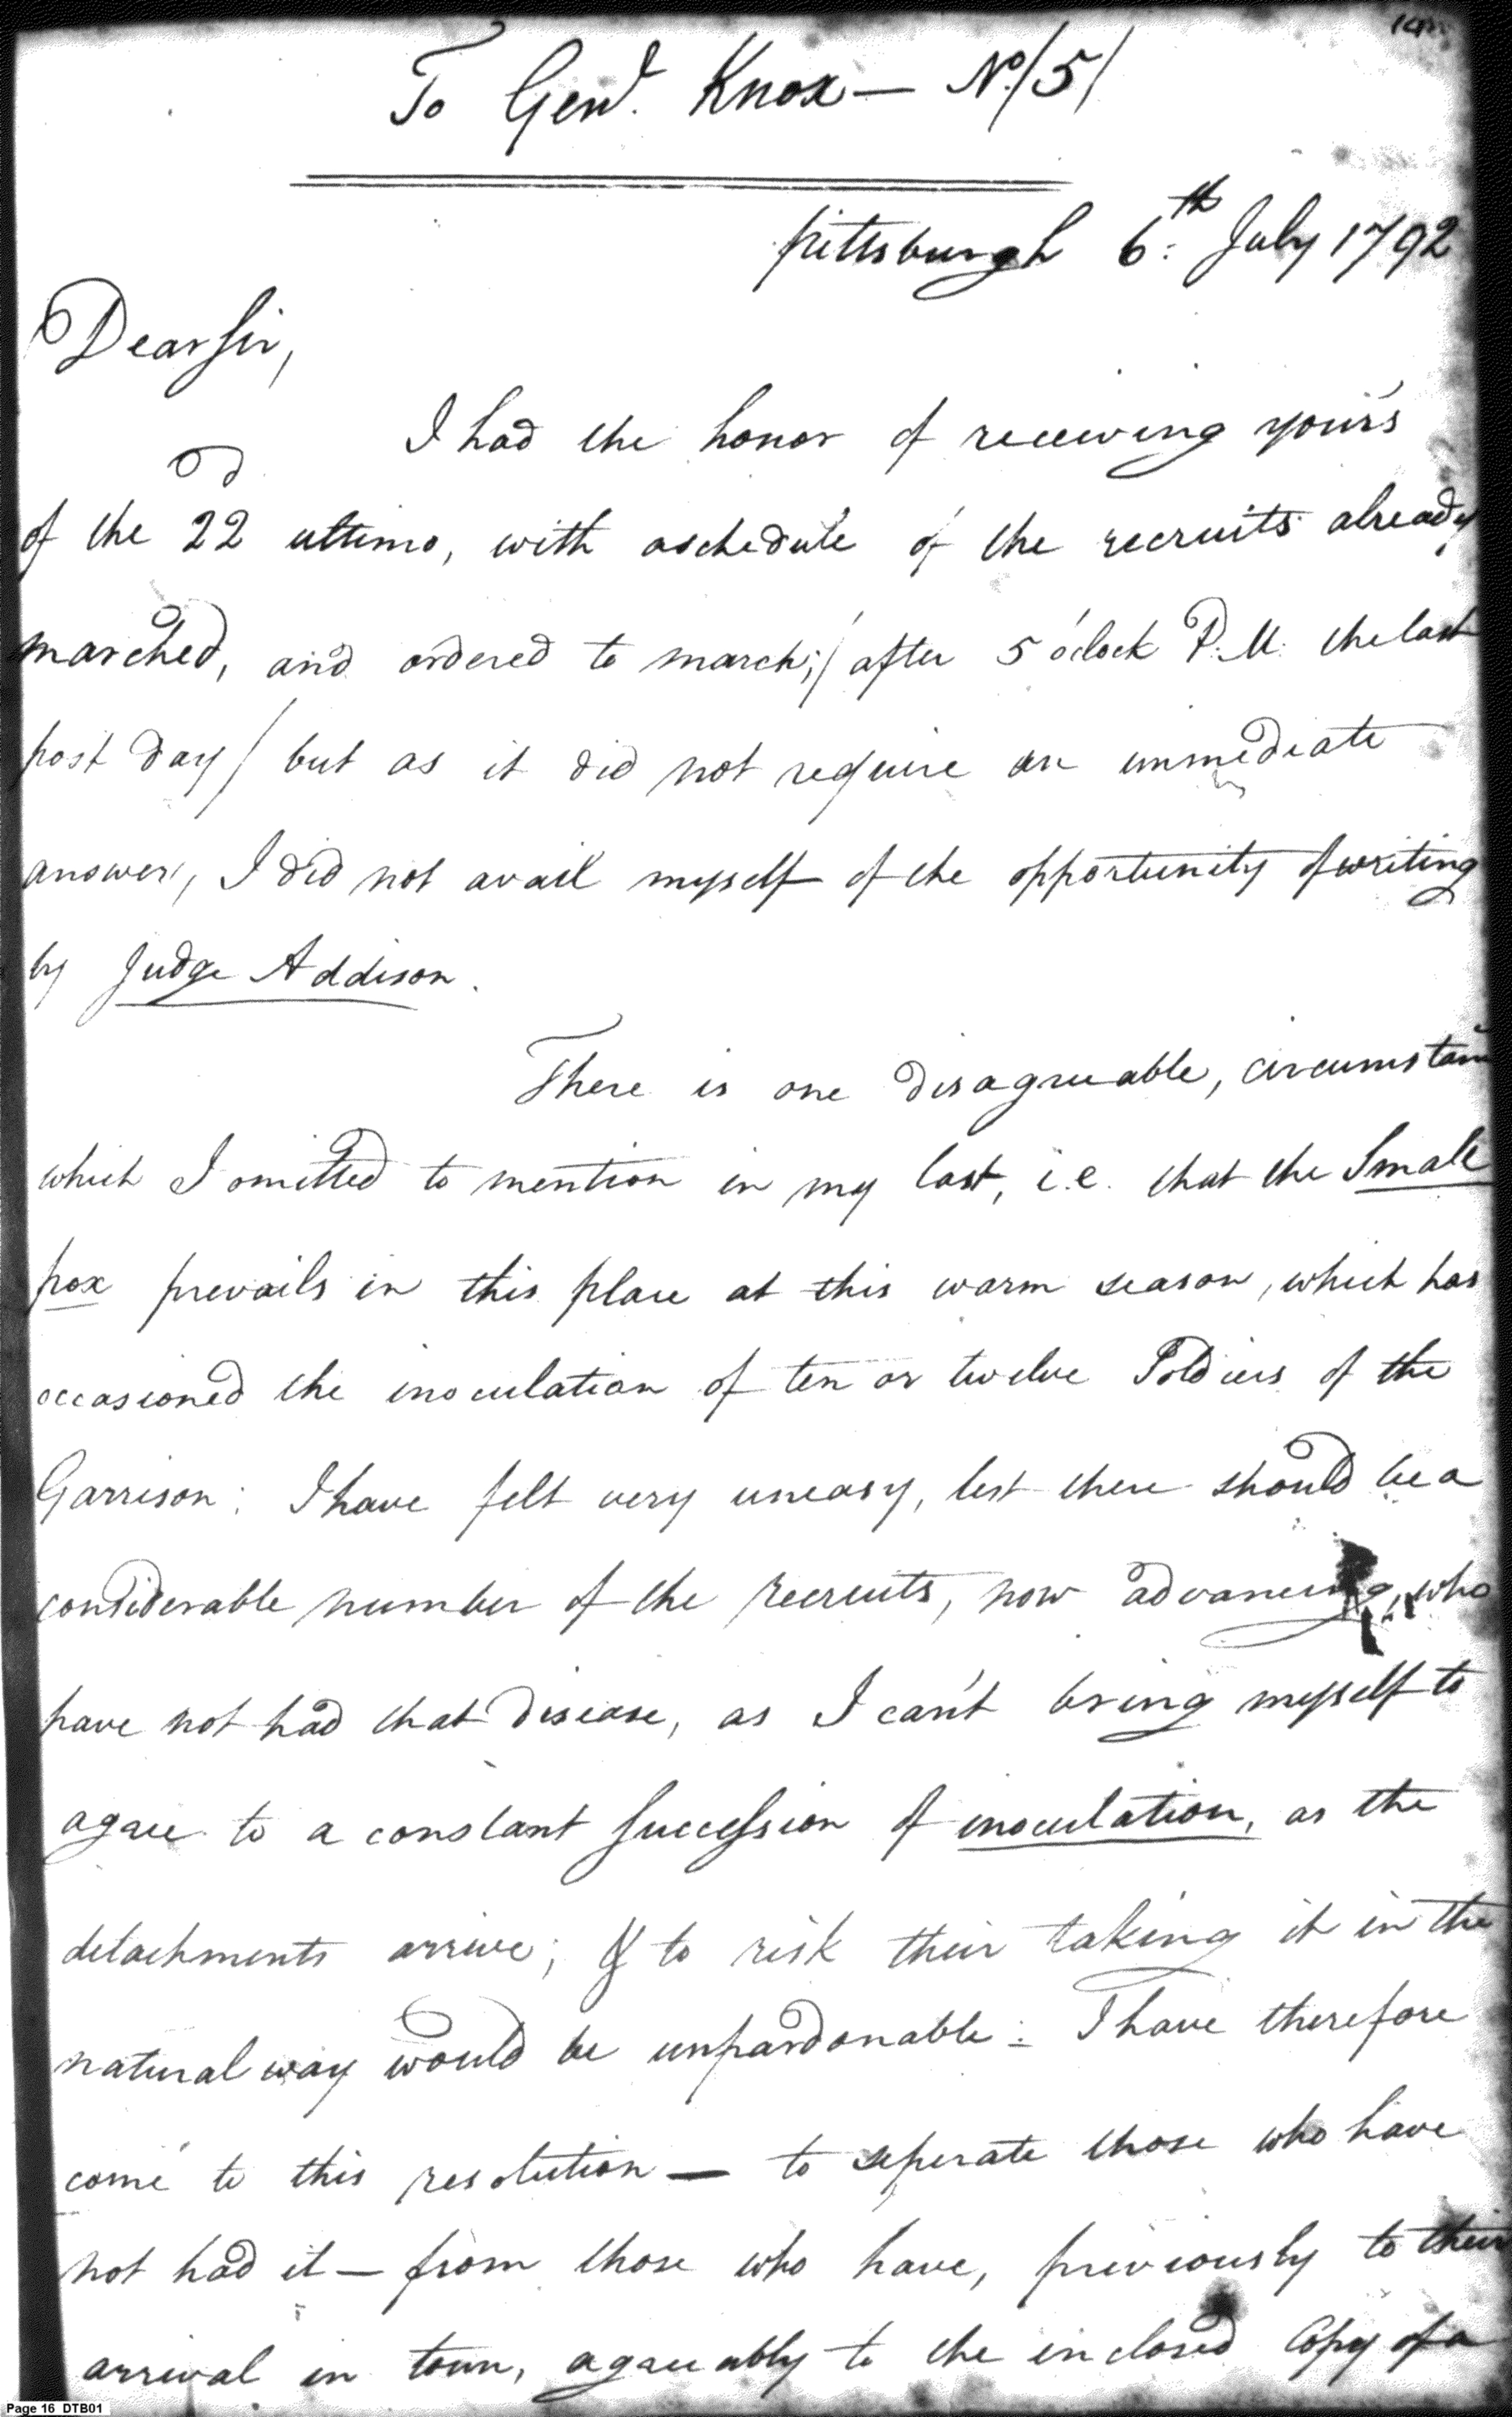 To Genl. Knox — No/5/
pittsburgh 6th July 1792
Dear Sir,
I had the honor of receiving your's
of the 22d ultimo, with a schedule of the recruits already
marched, and ordered to march;/after 5 o'clock P.M. the last
post day/ but as it did not require an immediate
answer, I did not avail myself of the opportunity of writing
by Judge Addison.
There is one disagreeable, circumstan
which I omitted to mention in my last, i.e. that the Small
pox prevails in this place at this warm season, which has
occasioned the inoculation of ten or twelve Soldiers of the
Garrison: I have felt very uneasy, lest there should be a
considerable number of the recruits, now advancing, who
have not had that disease, as I can't bring myself to
agree to a constant succession of inoculation, as the
detachments arrive; & to risk their taking it in the
natural way would be unpardonable: I have therefore
come to this resolution — to seperate those who have
not had it — from those who have, previously to their
arrival in town, agreeably to the inclosed Copy of a
Page 16 DTB01